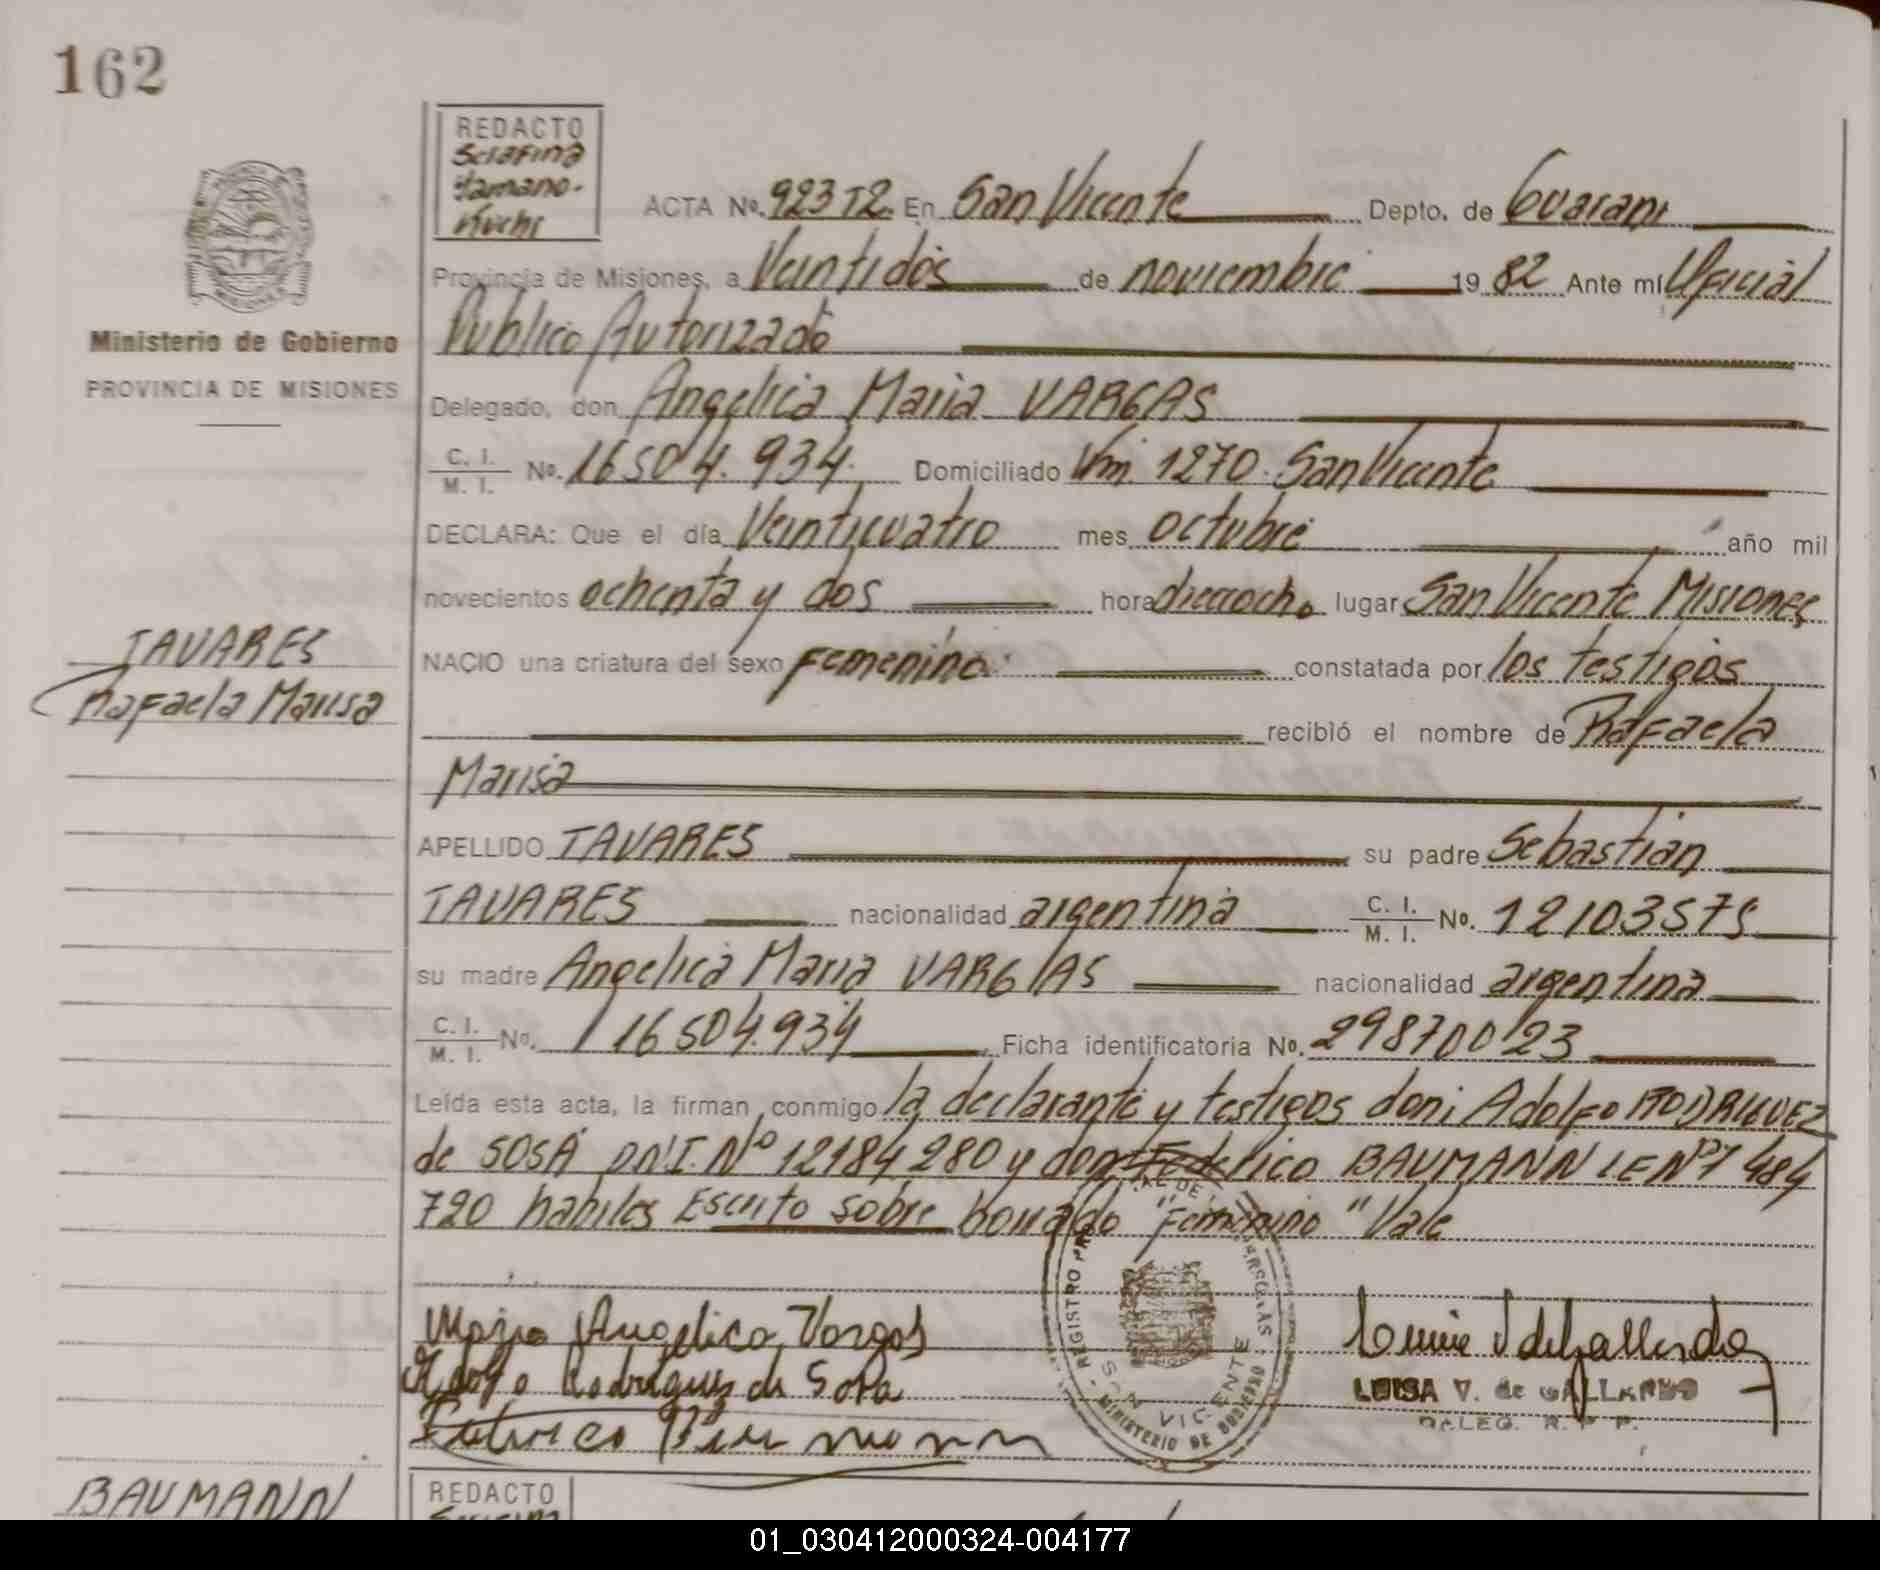 162
REDACTO
Serafina
Yamano-
Kuchi
ACTA No. 923 T2. En San Vicente Depto. de Guarani
Provincia de Misiones, a Veintidós de noviembre 19 82 Ante mí Oficial
Publico Autorizado
Ministerio de Gobierno
PROVINCIA DE MISIONES
Delegado, don Angelica Maria VARGAS
C. I. M. I. No. 16504.934. Domiciliado Km. 1270. San Vicente
DECLARA: Que el día Veinticuatro mes octubre año mil
novecientos ochenta y dos hora dieciocho lugar San Vicente Misiones
TAVARES
Rafaela Marisa
NACIO una criatura del sexo femenino. constatada por los testigos
recibió el nombre de Rafaela
Marisa
APELLIDO TAVARES su padre Sebastián
TAVARES nacionalidad argentina C. I. M. I. No. 12103575
su madre Angelica Maria VARGAS nacionalidad argentina
C. I. M. I. No. 16504.934 Ficha identificatoria No. 29870023
Leída esta acta, la firman conmigo la declarante y testigos don: Adolfo RODRIGUEZ
de SOSA D.N.I. Nº 12184280 y don Federico BAUMANN LE Nº 7 484
720 habiles Escrito sobre borrado "Femenino" Vale
Maria Angelica Vargas
Adolfo Rodrigues de Sosa
REGISTRO
SAN VICENTE
MINISTERIO DE GOBIERNO
LUISA V. de GALLARDO
DELEG. R. P. P.
BAUMANN
REDACTO
01_030412000324-004177